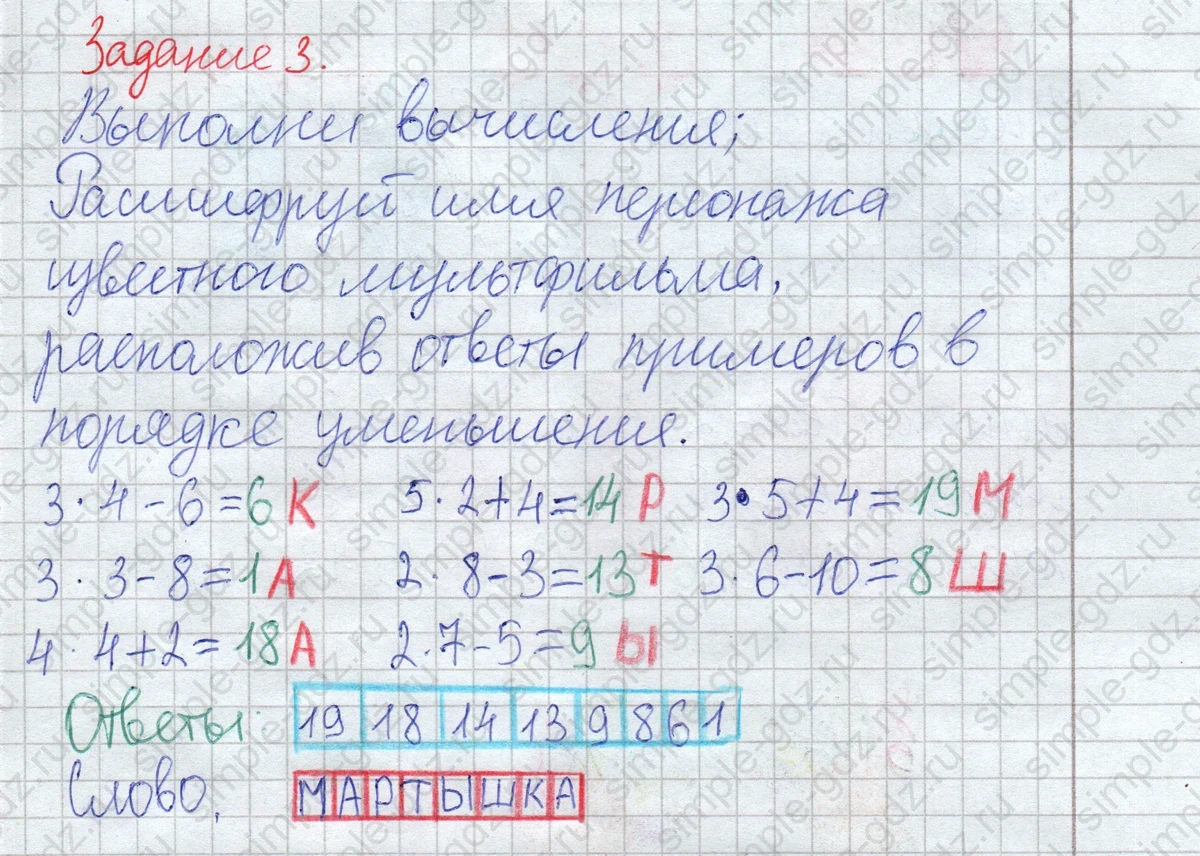 Задание 3.
Выполни вычисления;
Расшифруй имя персонажа
цветного мультфильма,
расположив ответы примеров в
порядке уменьшения.
3·4-6=6 К 5·2+4=14 Р 3·5+4=19 М
3·3-8=1 А 2·8-3=13 Т 3·6-10=8 Ш
4·4+2=18 А 2·7-5=9 Ы
Ответы: 19 18 14 13 9 8 6 1
Слово, МАРТЫШКА
simple-gdz.ru